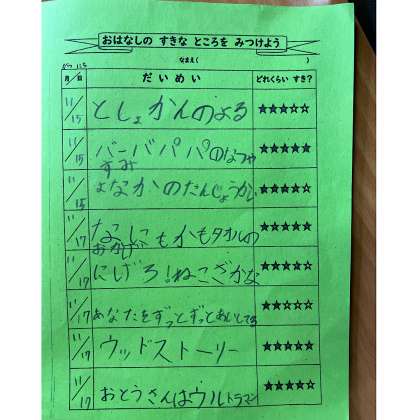 おはなしの すきな ところを みつけよう
なまえ( )
がつ にち
月/日 だいめい どれくらい すき?
11/15 としょかんのよる ★★★☆☆
11/15 バーバパパのなつや
すみ ★★★★★
11/15 よなかのたんじょうかい ★★★★☆
11/17 なにもかもタカルの
おかし ★★★★★
11/17 にげろ!ねこざかな ★★★★☆
11/17 あなたをずっとずっとあいしてる ★★☆☆☆
11/17 ウッドストーリー ★★★★★
11/17 おとうさんはウルトラマン ★★★★☆